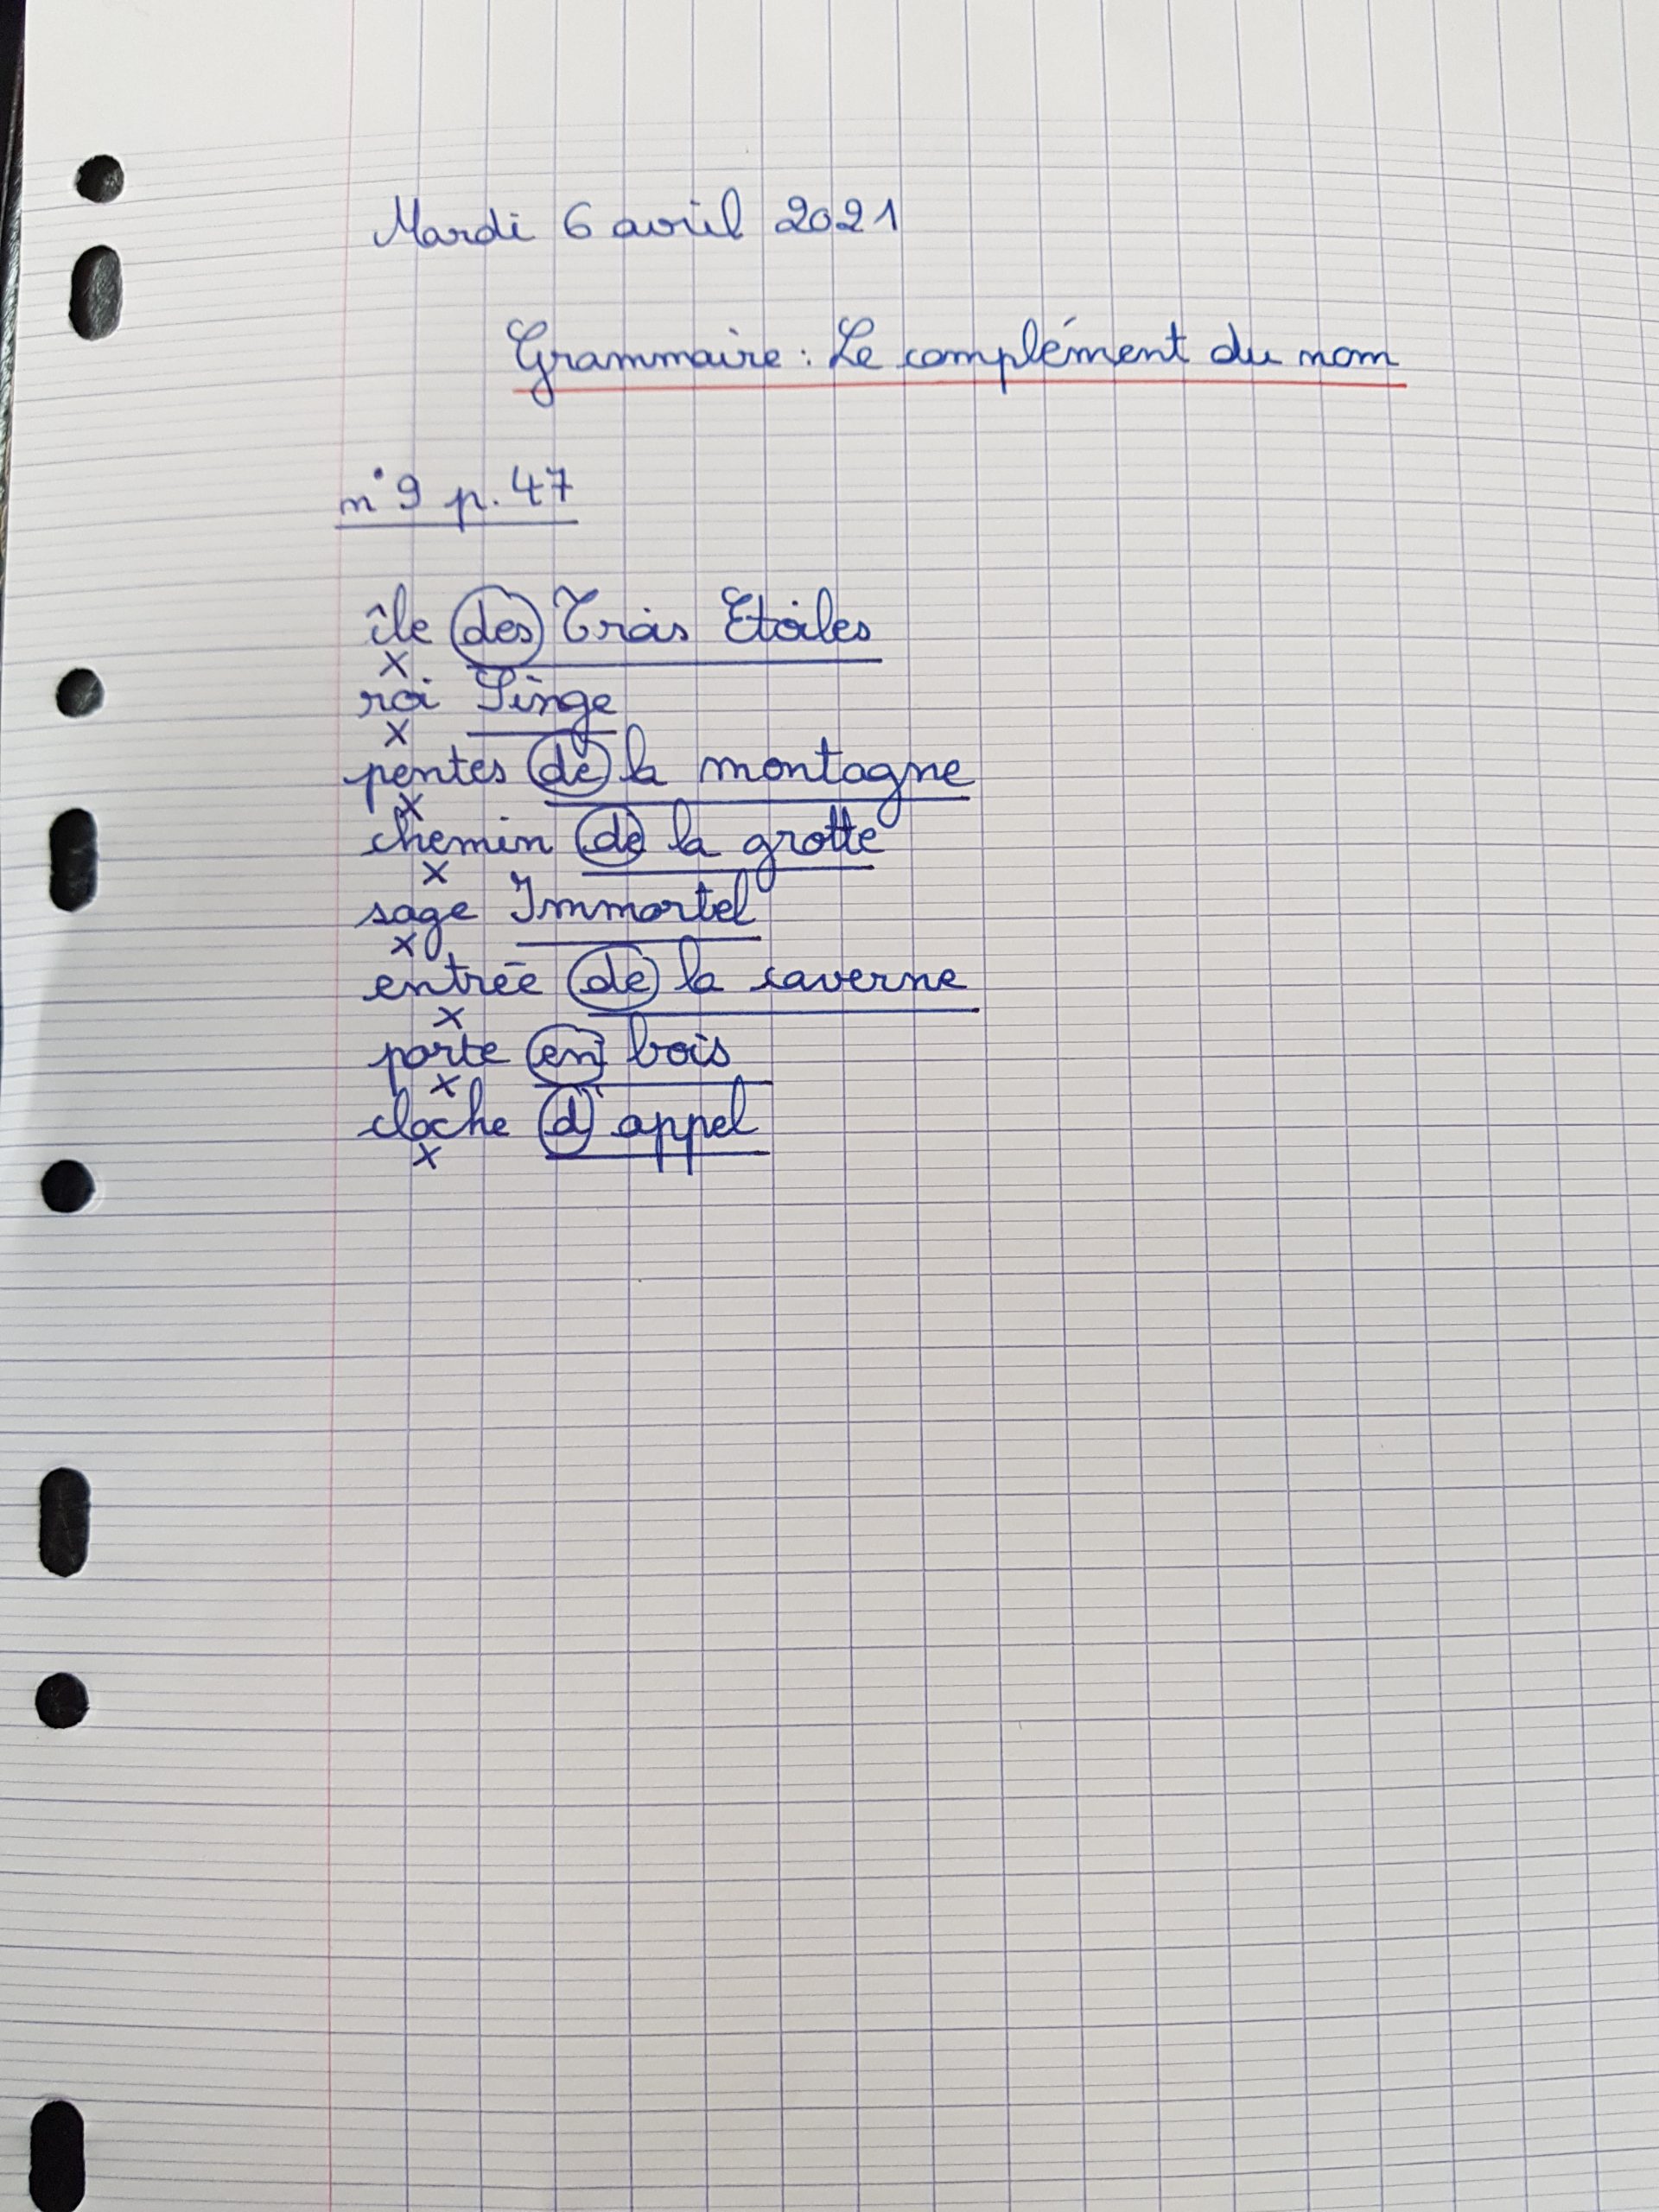 Mardi 6 avril 2021
Grammaire : Le complément du nom
n°9 p. 47
île des Trois Etoiles
roi Singe
pentes de la montagne
chemin de la grotte
sage Immortel
entrée de la caverne
porte en bois
cloche d'appel